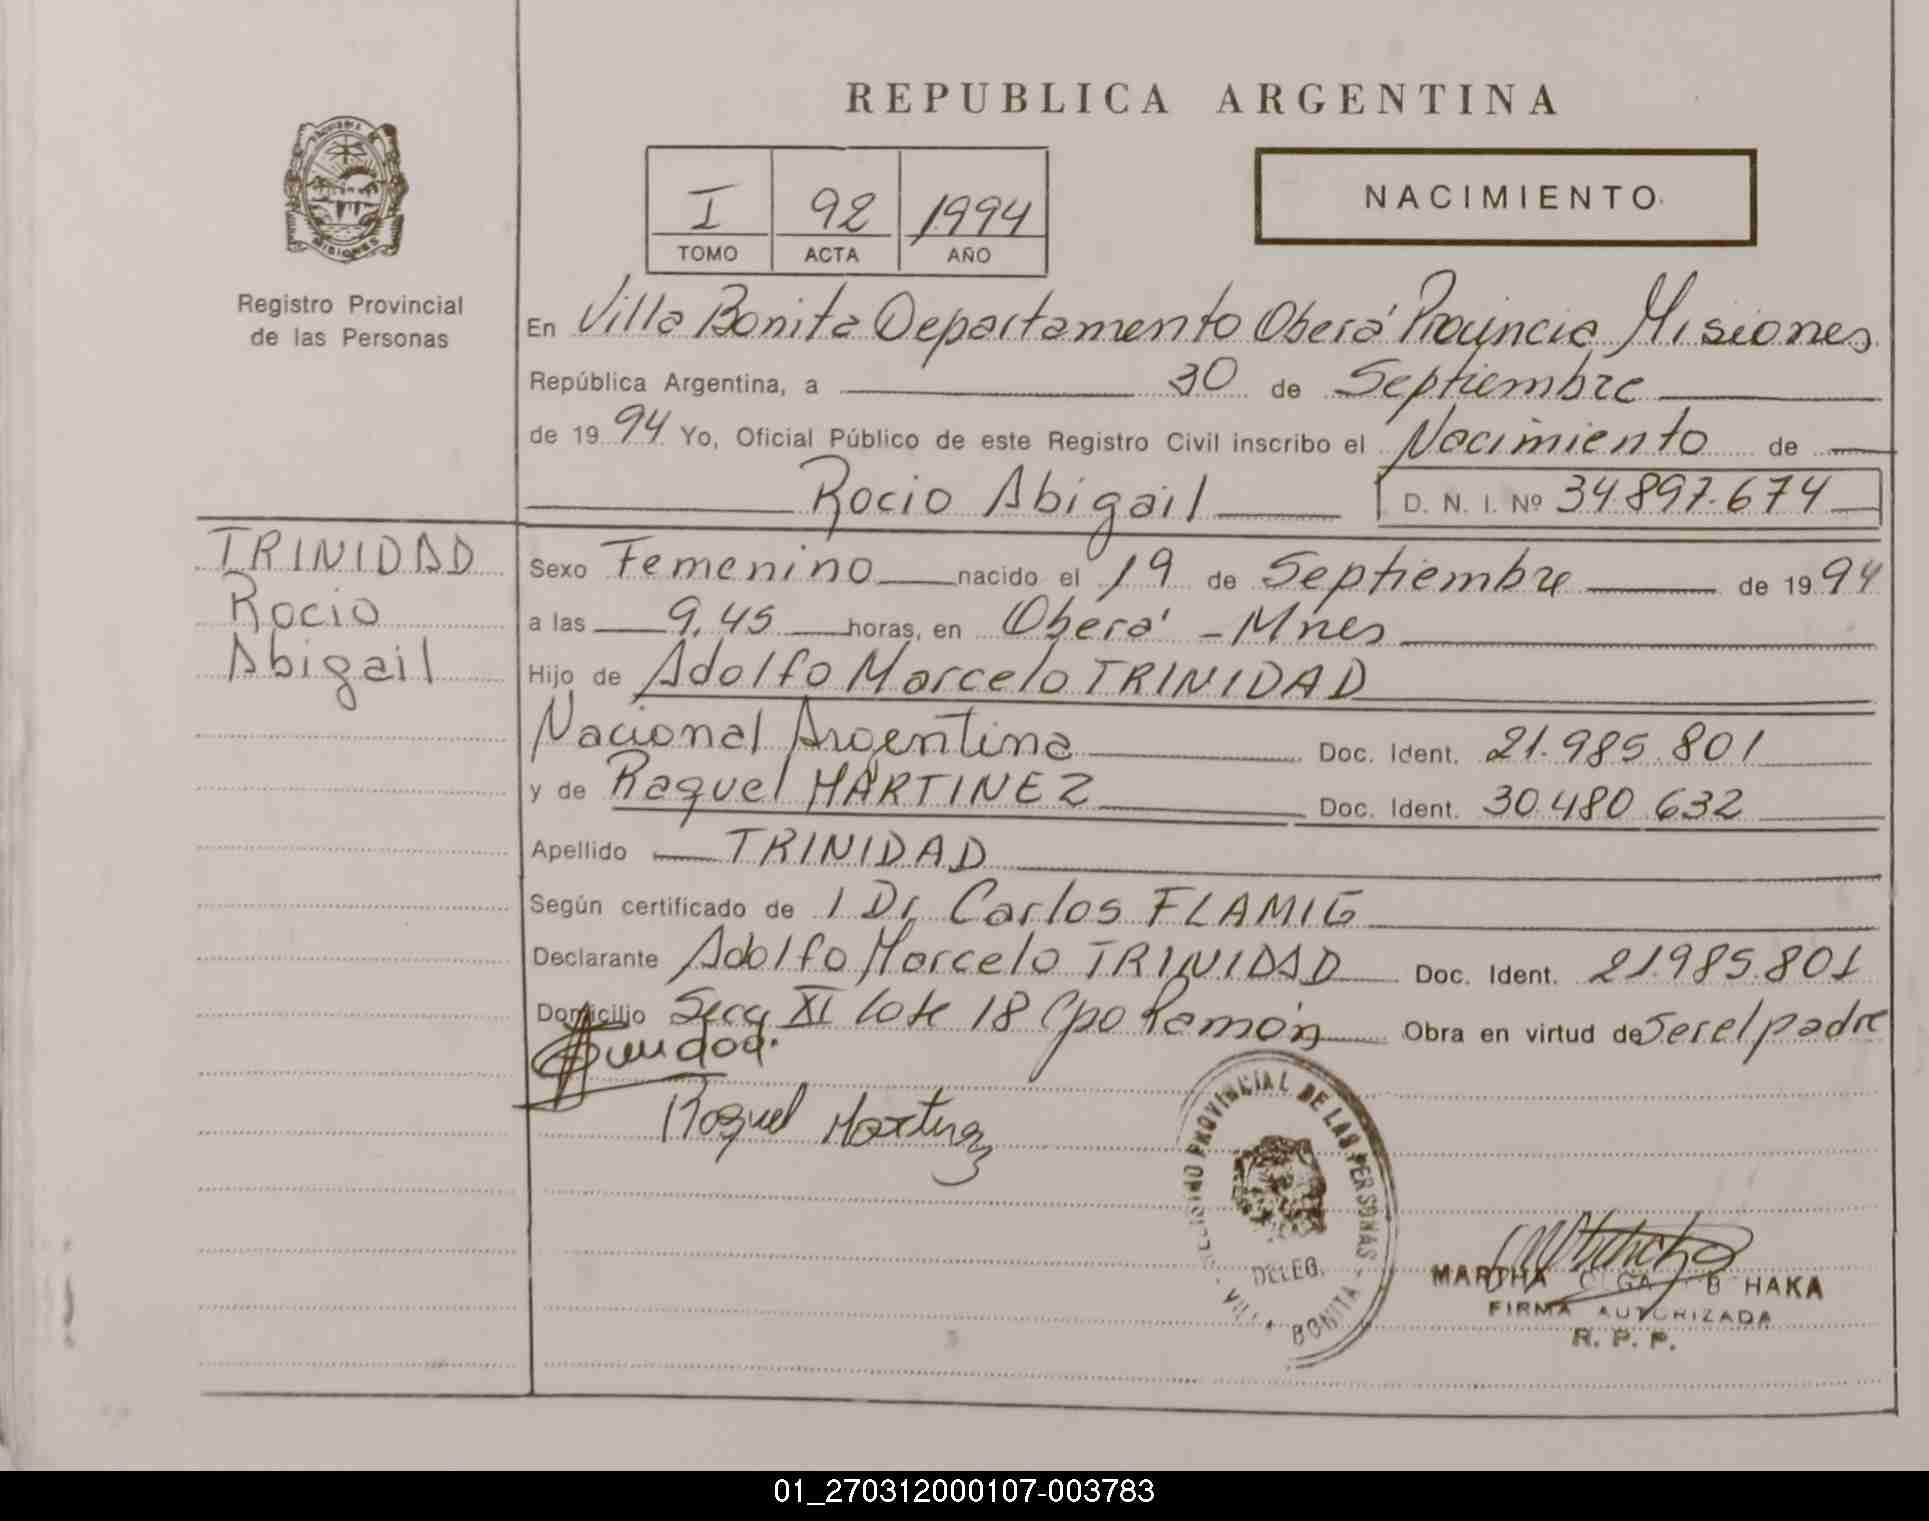 REPUBLICA ARGENTINA
I 92 1994
TOMO ACTA AÑO
NACIMIENTO
MISIONES
Registro Provincial
de las Personas
En Villa Bonita Departamento Oberá Provincia Misiones
República Argentina, a 30 de Septiembre
de 1994 Yo, Oficial Público de este Registro Civil inscribo el Nacimiento de
Rocio Abigail D. N. I. Nº 34.897.674
TRINIDAD
Rocio
Abigail
Sexo Femenino nacido el 19 de Septiembre de 1994
a las 9,45 horas, en Oberá - Mnes
Hijo de Adolfo Marcelo TRINIDAD
Nacional Argentina Doc. Ident. 21.985.801
y de Raquel MARTINEZ Doc. Ident. 30.480.632
Apellido TRINIDAD
Según certificado de 1 Dr. Carlos FLAMIG
Declarante Adolfo Marcelo TRINIDAD Doc. Ident. 21.985.801
Domicilio Secc XI lote 18 Cpo Ramón Obra en virtud de Ser el padre
Raquel Martinez
REGISTRO PROVINCIAL DE LAS PERSONAS
DELEG.
VILLA BONITA
MARTHA OLGA B HAKA
FIRMA AUTORIZADA
R. P. P.
01_270312000107-003783